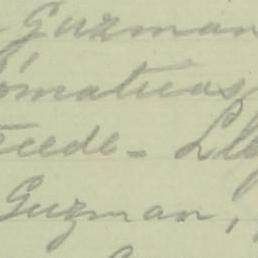 Guzman
omaticas
cede - Lle
Guzman,